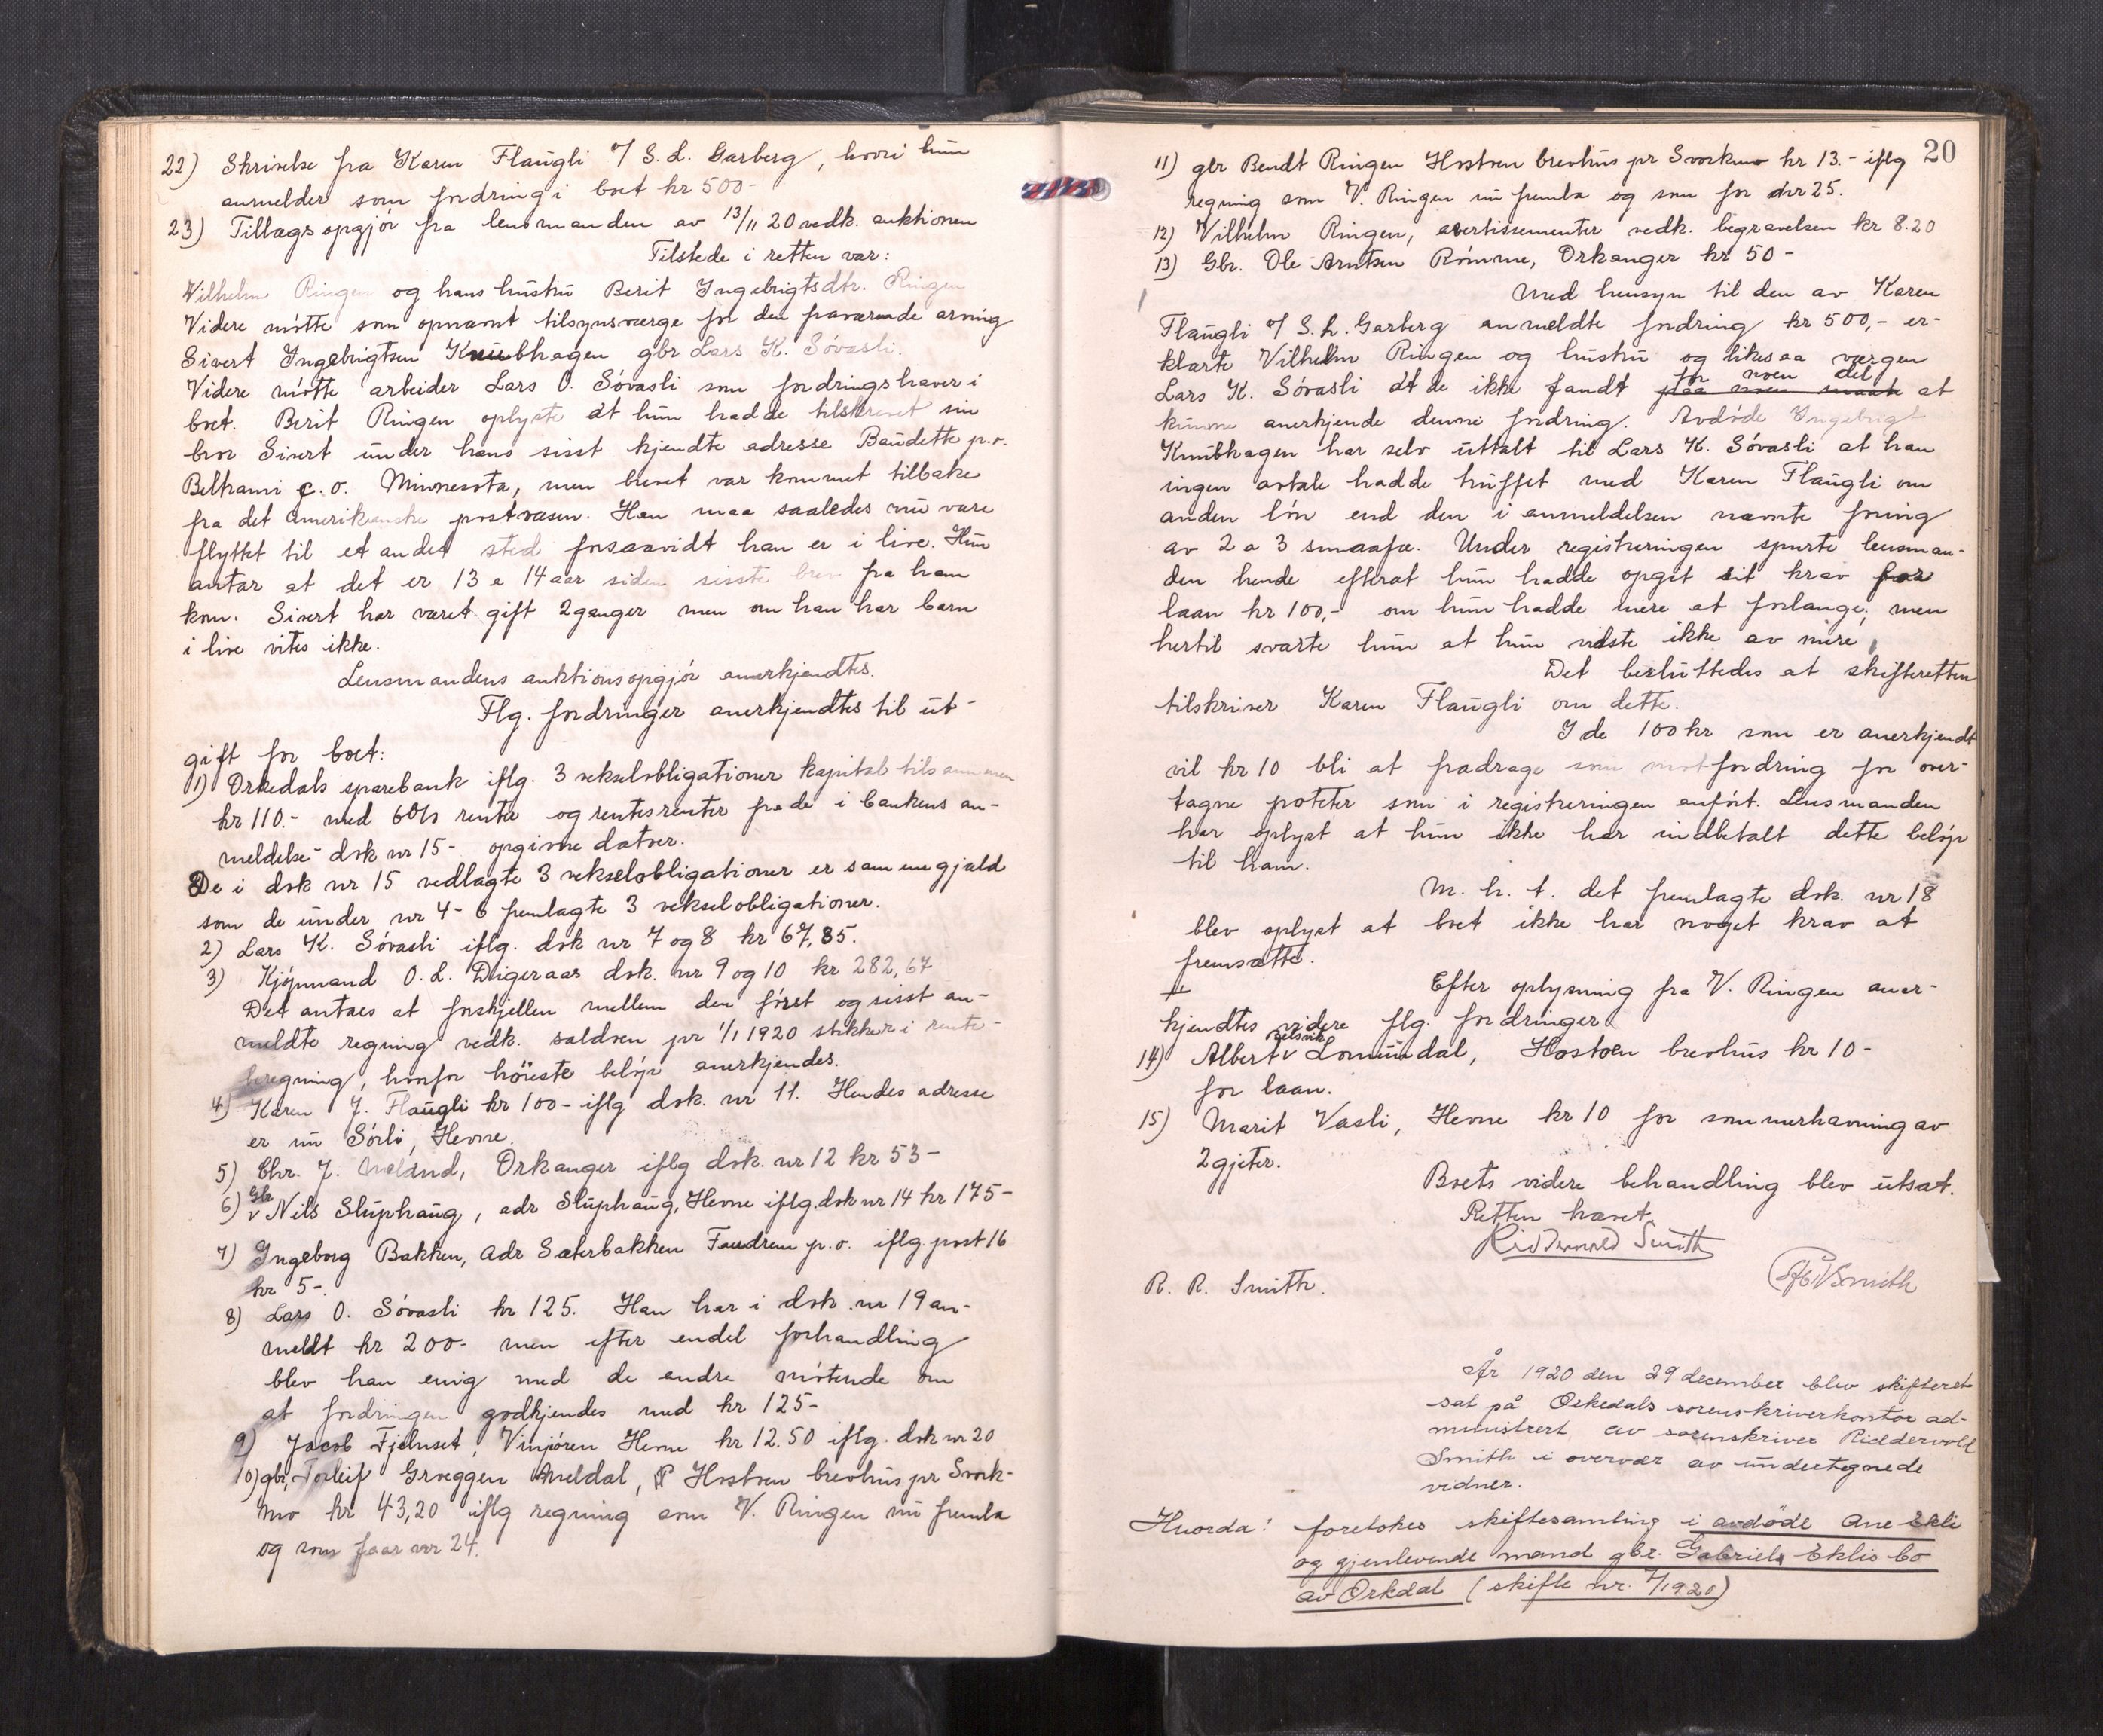 22) Skrivelse fra Karen Flaugli v/ S. L. Garberg, hvori hun
anmelder som fordring i boet kr 500-
23) Tillægsopgjör fra lensmanden av 13/11 20 vedk. auktionen
Tilstede i retten var:
Vilhelm Ringen og hans hustru Berit Ingebrigtsdtr. Ringen
Videre mötte som opnævnt tilsynsværge for den fraværende arving
Sivert Ingebrigtsen Knubhagen gbr Lars K. Sóvasli.
Videre mötte arbeider Lars O. Sóvasli som fordringshaver i
boet. Berit Ringen oplyste at hun hadde tilskrevet sin
bror Sivert under hans sisst kjendte adresse Baudette p.o.
Beltrami c.o. Minnesota, men brevet var kommet tilbake
fra det amerikanske postvæsen. Han maa saaledes nu være
flyttet til et andet sted forsaavidt han er i live. Hun
antar at det er 13 a 14 aar siden sisste brev fra ham
kom. Sivert har været gift 2 ganger men om han har barn
i live vites ikke.
Lensmandens auktionsopgjór anerkjendtes.
Flg. fordringer anerkjendtes til ut-
gift for boet:
1) Orkedals sparebank iflg. 3 vekselobligationer kapital tilsammen
kr 110.- med 6% rente og rentesrenter fra de i bankens an-
meldelse dok nr 15- opgivne datoer.
De i dok nr 15 vedlagte 3 vekselobligationer er samme gjæld
som de under nr 4-6 fremlagte 3 vekselobligationer.
2) Lars K. Sóvasli iflg. dok nr 7 og 8 kr 67,85.
3) Kjópmand O. L. Digeraas dok. nr 9 og 10 kr 282,67
Det antaes at forskjellen mellem den fórst og sisst an-
meldte regning vedk. saldoen pr 1/1 1920 stikker i rente-
beregning, hvorfor höieste belóp anerkjendes.
4) Karen J. Flaugli kr 100- iflg dok. nr 11. Hendes adresse
er nu Sórli, Hevne.
5) Chr. J. Meland, Orkanger iflg dok. nr 12 kr 53-
6) Gbr Nils Sluphaug, adr Sluphaug, Hevne iflg. dok nr 14 kr 175-
7) Ingeborg Bakken, adr Sæterbakken Fandrem p.o. iflg. post 16
kr 5-.
8) Lars O. Sóvasli kr 125. Han har i dok. nr 19 an-
meldt kr 200- men efter endel forhandling
blev han enig med de andre mótende om
at fordringen godkjendes med kr 125-
9) Jacob Fjelnset, Vinjóren Hevne kr 12.50 iflg. dok nr 20
10) gbr. Torleif Groeggen Meldal, Hostoen brevhus pr Svork-
mo kr 43,20 iflg regning som V. Ringen nu fremla
og som faar nr 24.
20
11) gbr Bendt Ringen Hostoen brevhus pr Svorkmo kr 13.- iflg
regning som V. Ringen nu fremla og som faar nr 25.
12) Vilhelm Ringen, avertissementer vedk. begravelsen kr 8.20
13) Gbr. Ole Arntsen Rómme, Orkanger kr 50-
Med hensyn til den av Karen
Flaugli v/ S. L. Garberg anmeldte fordring kr 500,- er-
klærte Vilhelm Ringen og hustru og likesaa vergen
for noen del
Lars K. Sóvasli at de ikke fandt paa noen maate at
kunne anerkjende denne fordring. Avdóde Ingebrigt
Knubhagen har selv uttalt til Lars K. Sóvasli at han
ingen avtale hadde truffet med Karen Flaugli om
anden lón end den i anmeldelsen nævnte foring
av 2 a 3 smaafæ. Under registreringen spurte lensman-
den hende efterat hun hadde opgit sit krav for
laan kr 100,- om hun hadde mere at forlange, men
hertil svarte hun at hun vidste ikke av mere.
Det besluttedes at skifteretten
tilskriver Karen Flaugli om dette.
I de 100 kr som er anerkjendt
vil kr 10 bli at fradrage som motfordring for over-
tagne poteter som i registreringen anfórt. Lensmanden
har oplyst at hun ikke har indbetalt dette belóp
til ham.
M. h. t. det fremlagte dok. nr 18
blev oplyst at boet ikke har noget krav at
fremsætte.
Efter oplysning fra V. Ringen aner-
kjendtes videre flg. fordringer
14) Albert Lomundal, Hostoen brevhus kr 10-
for laan.
15) Marit Vasli, Hevne kr 10 for sommerhavning av
2 gjeter.
Boets videre behandling blev utsat.
Retten hævet.
Riddervold Smith
R. R. Smith.
Smith
År 1920 den 29 december blev skifteret
sat på Orkedals sorenskriverkontor ad-
ministrert av sorenskriver Riddervold
Smith i overvær av undertegnede
vidner.
Hvorda: foretokes skiftesamling i avdöde Ane Ekli
og gjenlevende mand gbr. Gabriels Eklis bo
av Orkdal (skifte nr. 7/1920)